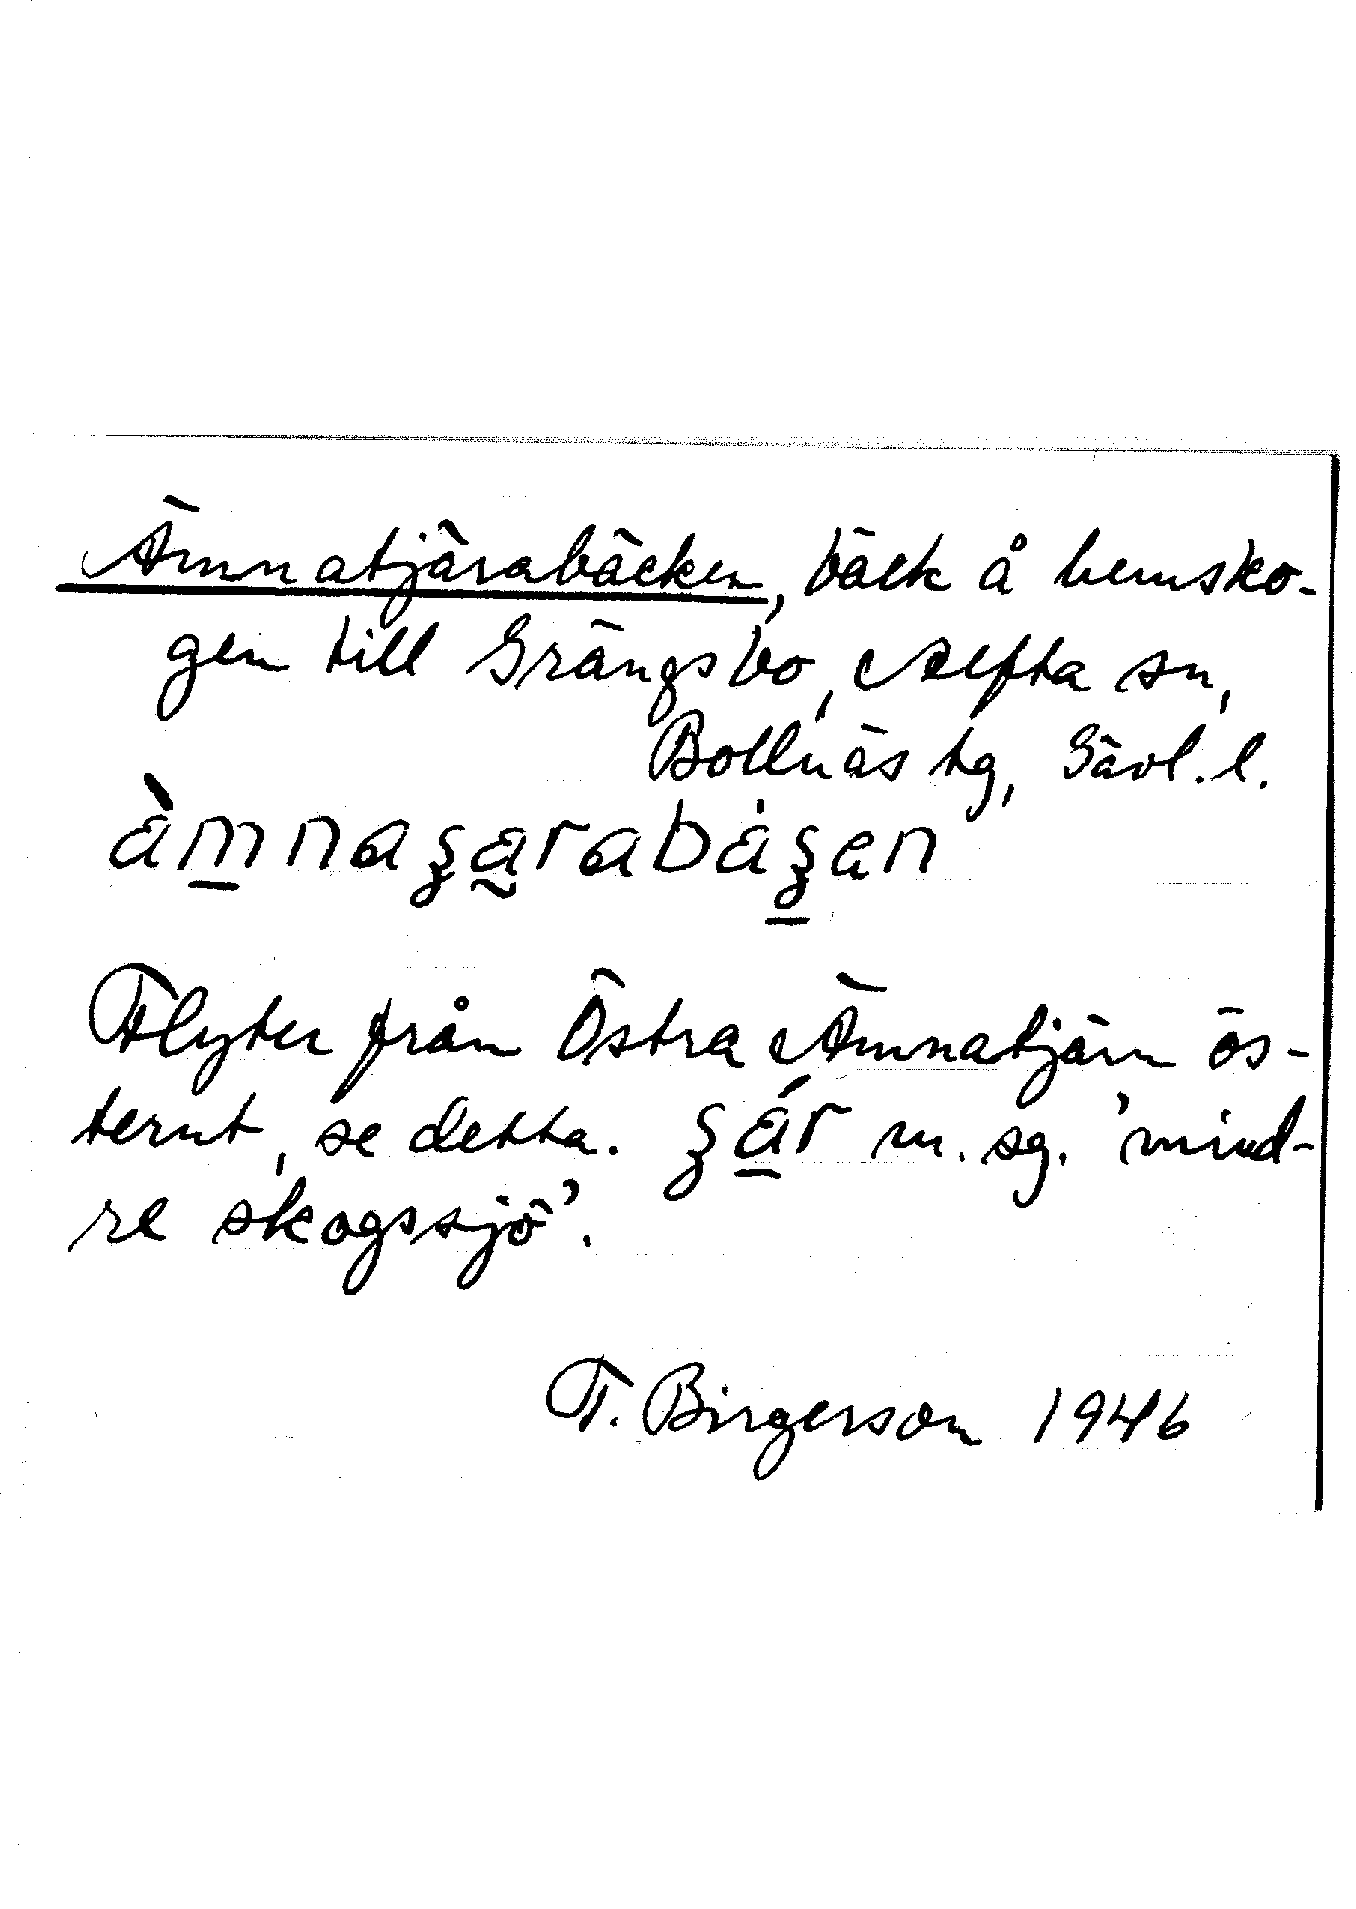 Ämnatjärabäcken, bäck å hemsko-
gen till Grängsbo, Alfta sn,
Bollnäs tg, Gävl. l.
Flyter från Östra Ämnatjärn ös-
ternt, se detta. m. sg. 'mind-
re skogssjö'.
T. Birgerson 1946